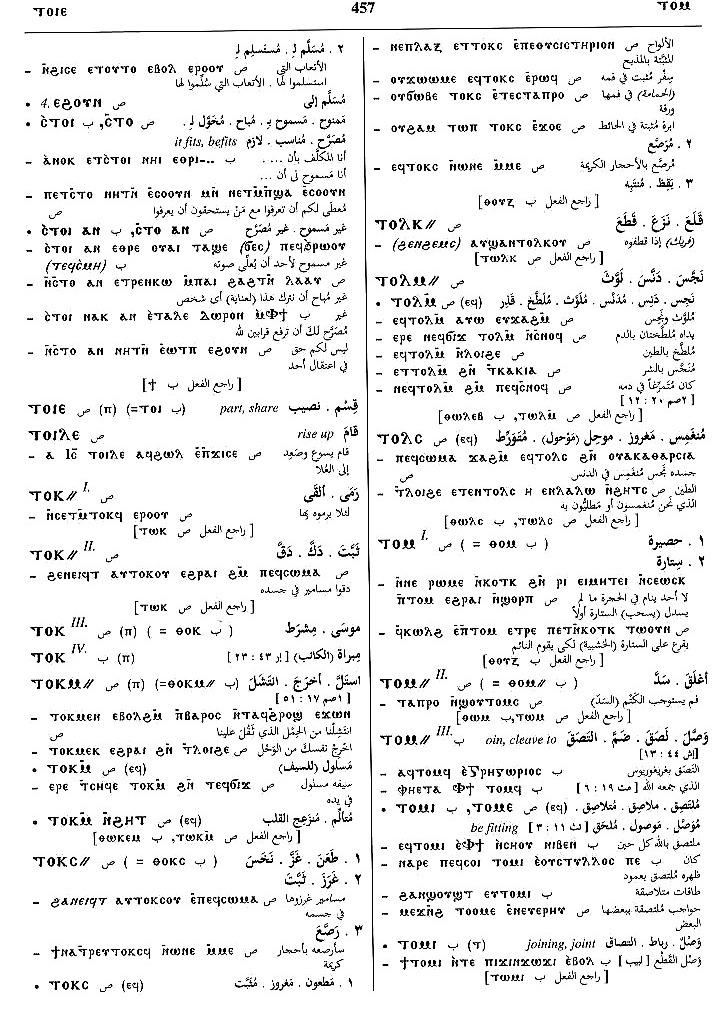 ⲧⲟⲓⲉ 457 ⲧⲟⲙ
٢ . مُسَلَّم لِـ . مُستَسلِم لِـ
– ⲛ̄ϩⲓⲥⲉ ⲉⲧⲟⲩⲧⲟ ⲉⲃⲟⲗ ⲉⲣⲟⲟⲩ ص الأتعاب التي
استسلموا لها . الأتعاب التي سُلِّموا لها
• 4. ⲉϩⲟⲩⲛ ص مُسَلَّم إلى
• ⲥ̄ⲧⲟⲓ ب ,ⲥ̄ⲧⲟ ص ممنوح . مَسموح بِـ . مُباح . مُخَوَّل لِـ .
it fits, befits مُصَرَّح . مُناسب . لازم
– ⲁⲛⲟⲕ ⲉⲧⲥ̄ⲧⲟⲓ ⲛⲏⲓ ⲉⲑⲣⲓ-... ب أنا المكلَّف بأن ... .
أنا مَسموح لى أن ...
– ⲡⲉⲧⲥ̄ⲧⲟ ⲛⲏⲧⲛ̄ ⲉ̄ⲥⲟⲟⲩⲛ ⲙⲛ̄ ⲛⲉⲧⲙ̄ⲡϣⲁ ⲉ̄ⲥⲟⲟⲩⲛ
مُعطَى لكم أن تعرفوا مع مَنْ يستحقون أن يعرفوا ص
• ⲥ̄ⲧⲟⲓ ⲁⲛ ب ,ⲥ̄ⲧⲟ ⲁⲛ ص غير مسموح . غير مُصَرَّح
– ⲥ̄ⲧⲟⲓ ⲁⲛ ⲉⲑⲣⲉ ⲟⲩⲁⲓ ⲧⲁϣⲉ (ϭⲉⲥ) ⲡⲉϥϧⲣⲱⲟⲩ
(ⲧⲉϥⲥⲙⲏ) ب غير مسموح لأحد أن يُعلِّى صوته
– ⲛ̄ⲥ̄ⲧⲟ ⲁⲛ ⲉⲧⲣⲉⲛⲕⲱ ⲙ̄ⲡⲁⲓ ϩⲁϩⲧⲛ̄ ⲗⲁⲁⲩ ص
غير مُباح أن نترك هذا (لعناية) أى شخص
– ⲥ̄ⲧⲟⲓ ⲛⲁⲕ ⲁⲛ ⲉ̄ⲧⲁⲗⲉ ⲇⲱⲣⲟⲛ ⲙ̄ⲫϯ ب غير
مُصَرَّح لكَ أن ترفع قرابين لله
– ⲛ̄ⲥ̄ⲧⲟ ⲁⲛ ⲛⲏⲧⲛ̄ ⲉ̄ⲱⲧⲡ ⲉϩⲟⲩⲛ ص ليس لكم حق
في اعتقال أحد
[ راجع الفعل ب ϯ ]
ⲧⲟⲓⲉ ص (ⲡ) (=ⲧⲟⲓ ب) part, share قِسْم . نصيب
ⲧⲟⲓⲗⲉ ص rise up قامَ
– ⲁ ⲓ̄ⲥ̄ ⲧⲟⲓⲗⲉ ⲁϥϩⲱⲗ ⲉ̄ⲡϫⲓⲥⲉ ص قام يسوع وصَعِد
إلى العُلا
ⲧⲟⲕ⫽ I. ص رَمَى . ألقَى
– ⲛ̄ⲥⲉⲧⲙ̄ⲧⲟⲕϥ ⲉⲣⲟⲟⲩ ص لئلا يرموه لها
[ راجع الفعل ص ⲧⲱⲕ ]
ⲧⲟⲕ⫽ II. ص ثَبَّتَ . دَكَّ . دَقَّ
– ϩⲉⲛⲉⲓϥⲧ ⲁⲩⲧⲟⲕⲟⲩ ⲉϩⲣⲁⲓ ϩⲙ̄ ⲡⲉϥⲥⲱⲙⲁ ص
دقوا مسامير في جسده
[ راجع الفعل ص ⲧⲱⲕ ]
ⲧⲟⲕ III. ص (ⲡ) ( = ⲑⲟⲕ ب ) موسَى . مِشرَط
ⲧⲟⲕ IV. ب (ⲡ) مِبراة (الكاتب) [ إر ٤٣ : ٢٣ ]
ⲧⲟⲕⲙ⫽ ص (ⲡ) (=ⲑⲟⲕⲙ⫽ ب) استَلَّ . أخرَجَ . انتَشَلَ
[ ١صم ١٧ : ٥١ ]
– ⲧⲟⲕⲙⲉⲛ ⲉⲃⲟⲗϩⲙ̄ ⲡⲃⲁⲣⲟⲥ ⲛ̄ⲧⲁϥϩⲣⲟϣ ⲉϫⲱⲛ
انتَشِلنا من الحِمل الذي ثَقُل علينا ص
– ⲧⲟⲕⲙⲉⲕ ⲉϩⲣⲁⲓ ϩⲛ̄ ⲧⲗⲟⲓϩⲉ ص اخرِج نفسكَ من الوَحْل
• ⲧⲟⲕⲙ̄ ص (ⲉϥ) مَسلول (للسيف)
– ⲉⲣⲉ ⲧⲥⲏϥⲉ ⲧⲟⲕⲙ̄ ϩⲛ̄ ⲧⲉϥϭⲓϫ ص سيفه مسلول
في يده
• ⲧⲟⲕⲙ̄ ⲛ̄ϩⲏⲧ ص (ⲉϥ) مُتألِّم . مُنزَعِج القلب
[ راجع الفعل ص ⲧⲱⲕⲙ̄, ب ⲑⲱⲕⲉⲙ ]
ⲧⲟⲕⲥ⫽ ص ( = ⲑⲟⲕⲥ ب ) ١ . طَعَنَ . غَزَّ . نَخَسَ
٢ . غَرَزَ . ثَبَّتَ
– ϩⲁⲛⲉⲓϥⲧ ⲁⲩⲧⲟⲕⲥⲟⲩ ⲉ̄ⲡⲉϥⲥⲱⲙⲁ ص مسامير غرزوها
في جسمه
٣ . رَصَّعَ
– ϯⲛⲁⲧⲣⲉⲩⲧⲟⲕⲥϥ ⲛ̄ⲱⲛⲉ ⲙ̄ⲙⲉ ص سأرصعه بأحجار
كريمة
• ⲧⲟⲕⲥ ص (ⲉϥ) ١ . مَطعون . مَغروز . مُثَبَّت
– ⲛⲉⲡⲗⲁⲝ ⲉⲧⲧⲟⲕⲥ ⲉ̄ⲡⲉⲑⲩⲥⲓⲥⲧⲏⲣⲓⲟⲛ ص الألواح
المُثبَّتة بالمَذبح
– ⲟⲩϫⲱⲱⲙⲉ ⲉϥⲧⲟⲕⲥ ⲉ̄ⲣⲱϥ ص سِفْر مُثبت في فمه
– ⲟⲩϭⲱⲃⲉ ⲧⲟⲕⲥ ⲉ̄ⲧⲉⲥⲧⲁⲡⲣⲟ ص (الحمامة) في فمها
ورقة
– ⲟⲩϩⲁⲙ ⲧⲱⲡ ⲧⲟⲕⲥ ⲉ̄ϫⲟⲉ ص ابرة مُثبتة في الحائط
٢ . مُرَصَّع
– ⲉϥⲧⲟⲕⲥ ⲛ̄ⲱⲛⲉ ⲙ̄ⲙⲉ ص مُرصَّع بالأحجار الكريمة
٣ . يَقِظ . مُنتَبِه
[ راجع الفعل ب ⲑⲟⲩⲝ ]
ⲧⲟⲗⲕ⫽ ص قَلَعَ . نَزَعَ . قَطَعَ
– (ϩⲉⲛϩⲉⲙⲥ) ⲁⲩϣⲁⲛⲧⲟⲗⲕⲟⲩ ص (فريك) إذا قطفوه
[ راجع الفعل ص ⲧⲱⲗⲕ ]
ⲧⲟⲗⲙ⫽ ص نَجَّسَ . دَنَّسَ . لَوَّثَ
• ⲧⲟⲗⲙ̄ ص (ⲉϥ) نَجِس . دَنِس . مُدَنَّس . مُلَوَّث . مُلَطَّخ . قَذِر
– ⲉϥⲧⲟⲗⲙ̄ ⲁⲩⲱ ⲉⲩϫⲁϩⲙ̄ ص مُلوَّث ونَجِس
– ⲉⲣⲉ ⲛⲉϥϭⲓϫ ⲧⲟⲗⲙ̄ ⲛ̄ⲥⲛⲟϥ ص يداه مُلَطَّختان بالدم
– ⲉϥⲧⲟⲗⲙ̄ ⲛ̄ⲗⲟⲓϩⲉ ص مُلَطَّخ بالطين
– ⲉⲧⲧⲟⲗⲙ̄ ϩⲛ̄ ⲧⲕⲁⲕⲓⲁ ص مُنَجَّس بالشر
– ⲛⲉϥⲧⲟⲗⲙ̄ ϩⲙ̄ ⲡⲉϥⲥⲛⲟϥ ص كان يَتَمَرَّغ في دمه
[ ٢صم ٢٠ : ١٢ ]
[ راجع الفعل ص ⲧⲱⲗⲙ̄, ب ⲑⲱⲗⲉⲃ ]
ⲧⲟⲗⲥ ص (ⲉϥ) مُنغَمِس . مَغروز . موحِل (مَوْحول) . مُتَوَرِّط
– ⲡⲉϥⲥⲱⲙⲁ ϫⲁϩⲙ̄ ⲉϥⲧⲟⲗⲥ ϩⲛ̄ ⲟⲩⲁⲕⲁⲑⲁⲣⲥⲓⲁ
جسده نَجِس مُنغَمِس في الدنس ص
– ⲧⲗⲟⲓϩⲉ ⲉⲧⲉⲛⲧⲟⲗⲥ ⲏ ⲉⲛⲗⲁⲗⲱ ⲛ̄ϩⲏⲧⲥ ص الطين
الذي نحن مُنغمسون أو مَطليُّون به
[ راجع الفعل ص ⲧⲱⲗⲥ, ب ⲑⲱⲗⲥ ]
ⲧⲟⲙ I. ص ( = ⲑⲟⲙ ب ) ١ . حصيرة
٢ . ستارة
– ⲛ̄ⲛⲉ ⲣⲱⲙⲉ ⲛ̄ⲕⲟⲧⲕ ϩⲛ̄ ⲣⲓ ⲉⲓⲙⲏⲧⲉⲓ ⲛ̄ⲥⲉⲱⲥⲕ
ⲡ̄ⲧⲟⲙ ⲉϩⲣⲁⲓ ⲛ̄ϣⲟⲣⲡ ص لا أحد ينام في الحجرة ما لم
يسدل (يسحب) الستارة أولاً
– ϥ̄ⲕⲱⲗϩ ⲉ̄ⲡⲧⲟⲙ ⲉⲧⲣⲉ ⲡⲉⲧⲛ̄ⲕⲟⲧⲕ ⲧⲱⲟⲩⲛ ص
يقرع على الستارة (الخشبية) لكى يقوم النائم
[ راجع الفعل ب ⲑⲟⲩⲝ ]
ⲧⲟⲙ⫽ II. ص ( = ⲑⲟⲙ⫽ ب ) أغلَقَ . سَدَّ
– ⲧⲁⲡⲣⲟ ⲛ̄ϣⲟⲩⲧⲟⲙⲥ ص فم يستوجب الكَتْم (السَدّ)
[ راجع الفعل ص ⲧⲱⲙ, ب ⲑⲱⲙ ]
ⲧⲟⲙ⫽ III. ب oin, cleave to وَصَّلَ . لَصَقَ . ضَمَّ . التَصَقَ
[ إش ٤٤ : ١٣ ]
– ⲁϥⲧⲟⲙϥ ⲉ̄ⲅⲣⲏⲅⲱⲣⲓⲟⲥ ب التصَق بغريغوريوس
– ⲫⲏⲉⲧⲁ ⲫϯ ⲧⲟⲙϥ ب الذي جمعه الله [ مت ١٩ : ٦ ]
• ⲧⲟⲙⲓ ب ,ⲧⲟⲟⲙⲉ ص (ⲉϥ) مُلتصق . ملاصِق . مُتلاصق .
be fitting [ ث ١١ : ٣ ] مُوَصَّل . مَوصول . مُلحَق
– ⲉϥⲧⲟⲙⲓ ⲉ̄ⲫϯ ⲛ̄ⲥⲏⲟⲩ ⲛⲓⲃⲉⲛ ب ملتصق بالله كل حين
– ⲛⲁⲣⲉ ⲡⲉϥⲥⲟⲓ ⲧⲟⲙⲓ ⲉ̄ⲟⲩⲥⲧⲩⲗⲗⲟⲥ ⲡⲉ ب كان
ظهره مُلتصق بعمود
– ϩⲁⲛϣⲟⲩϣⲧ ⲉⲩⲧⲟⲙⲓ ب طاقات متلاصقة
– ⲙⲉϫⲛ̄ϩ ⲧⲟⲟⲙⲉ ⲉ̄ⲛⲉⲩⲉⲣⲏⲩ ص حواجب مُلتصقة ببعضها
البعض
• ⲧⲟⲙⲓ ب (ⲧ) joining, joint وَصْل . رباط . التصاق
– ϯⲧⲟⲙⲓ ⲛ̄ⲧⲉ ⲡⲓϫⲓⲛϫⲱϫⲓ ⲉ̄ⲃⲟⲗ ب [ لبيب ] وَصْل القَطْع
[ راجع الفعل ب ⲧⲱⲙⲓ ]